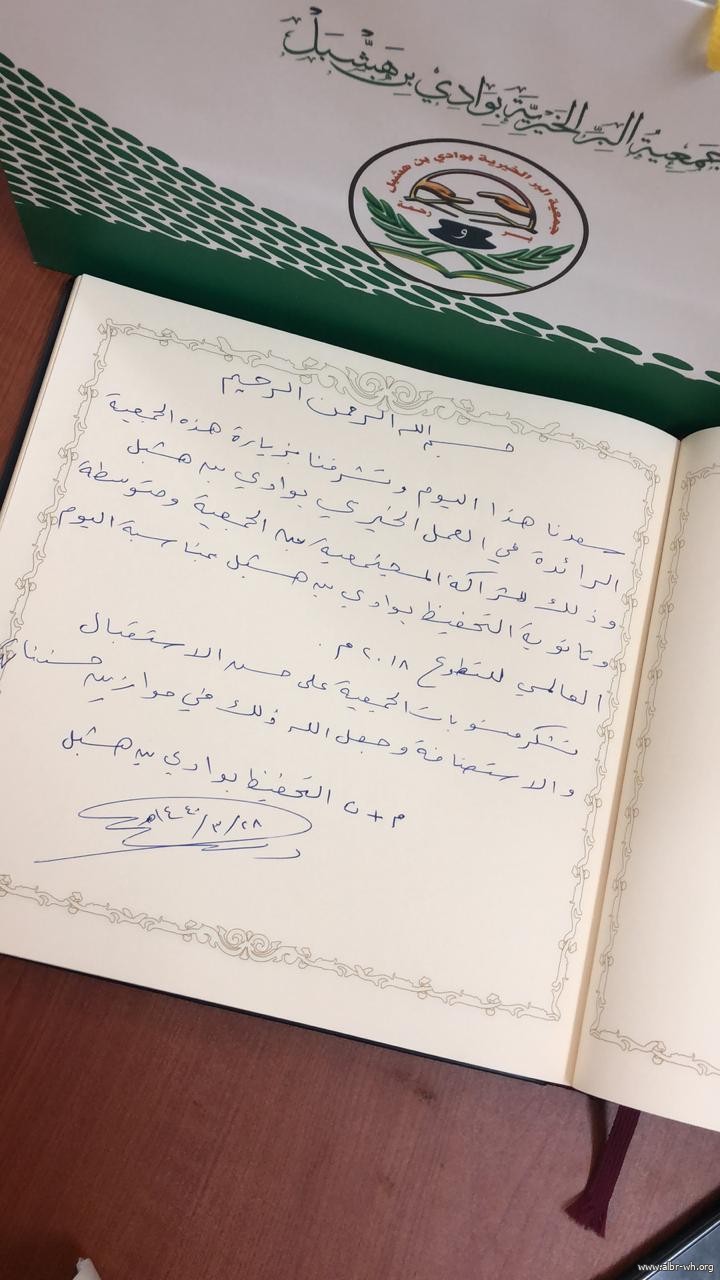 جمعية البر الخيرية بوادي بن هشبل
جمعية البر الخيرية بوادي بن هشبل
بسم الله الرحمن الرحيم
سعدنا هذا اليوم وتشرفنا بزيارة هذه الجمعية
الرائدة في العمل الخيري بوادي بن هشبل
وذلك للشراكة المجتمعية بين الجمعية ومتوسطة
وثانوية التحفيظ بوادي بن هشبل بمناسبة اليوم
العالمي للتطوع ٢٠١٨ م .
نشكر منسوبات الجمعية على حسن الاستقبال
والاستضافة وجعل الله ذلك في موازين حسناتهم
م + ث التحفيظ بوادي بن هشبل
٢٨/٣/١٤٤٠هـ
www.albr-wh.org